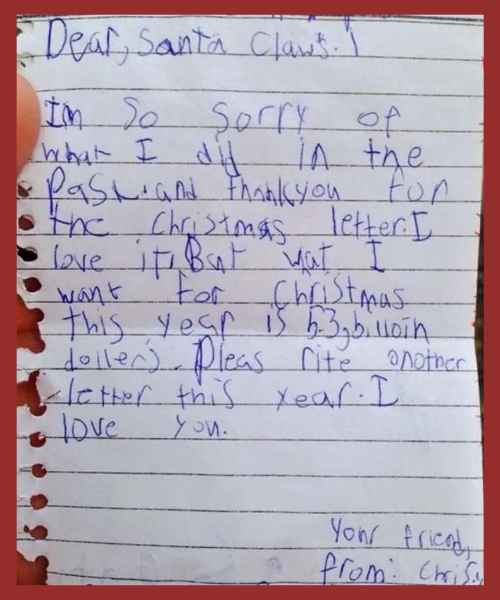 Dear, Santa Claws.
Im So Sorry of
what I did in the
Past. and thankyou for
the Christmas letter. I
love it! But wat I
want for Christmas
this year is 5.3, billoin
dollers. Pleas rite another
letter this year. I
love you.
Your friend,
from: Chris.